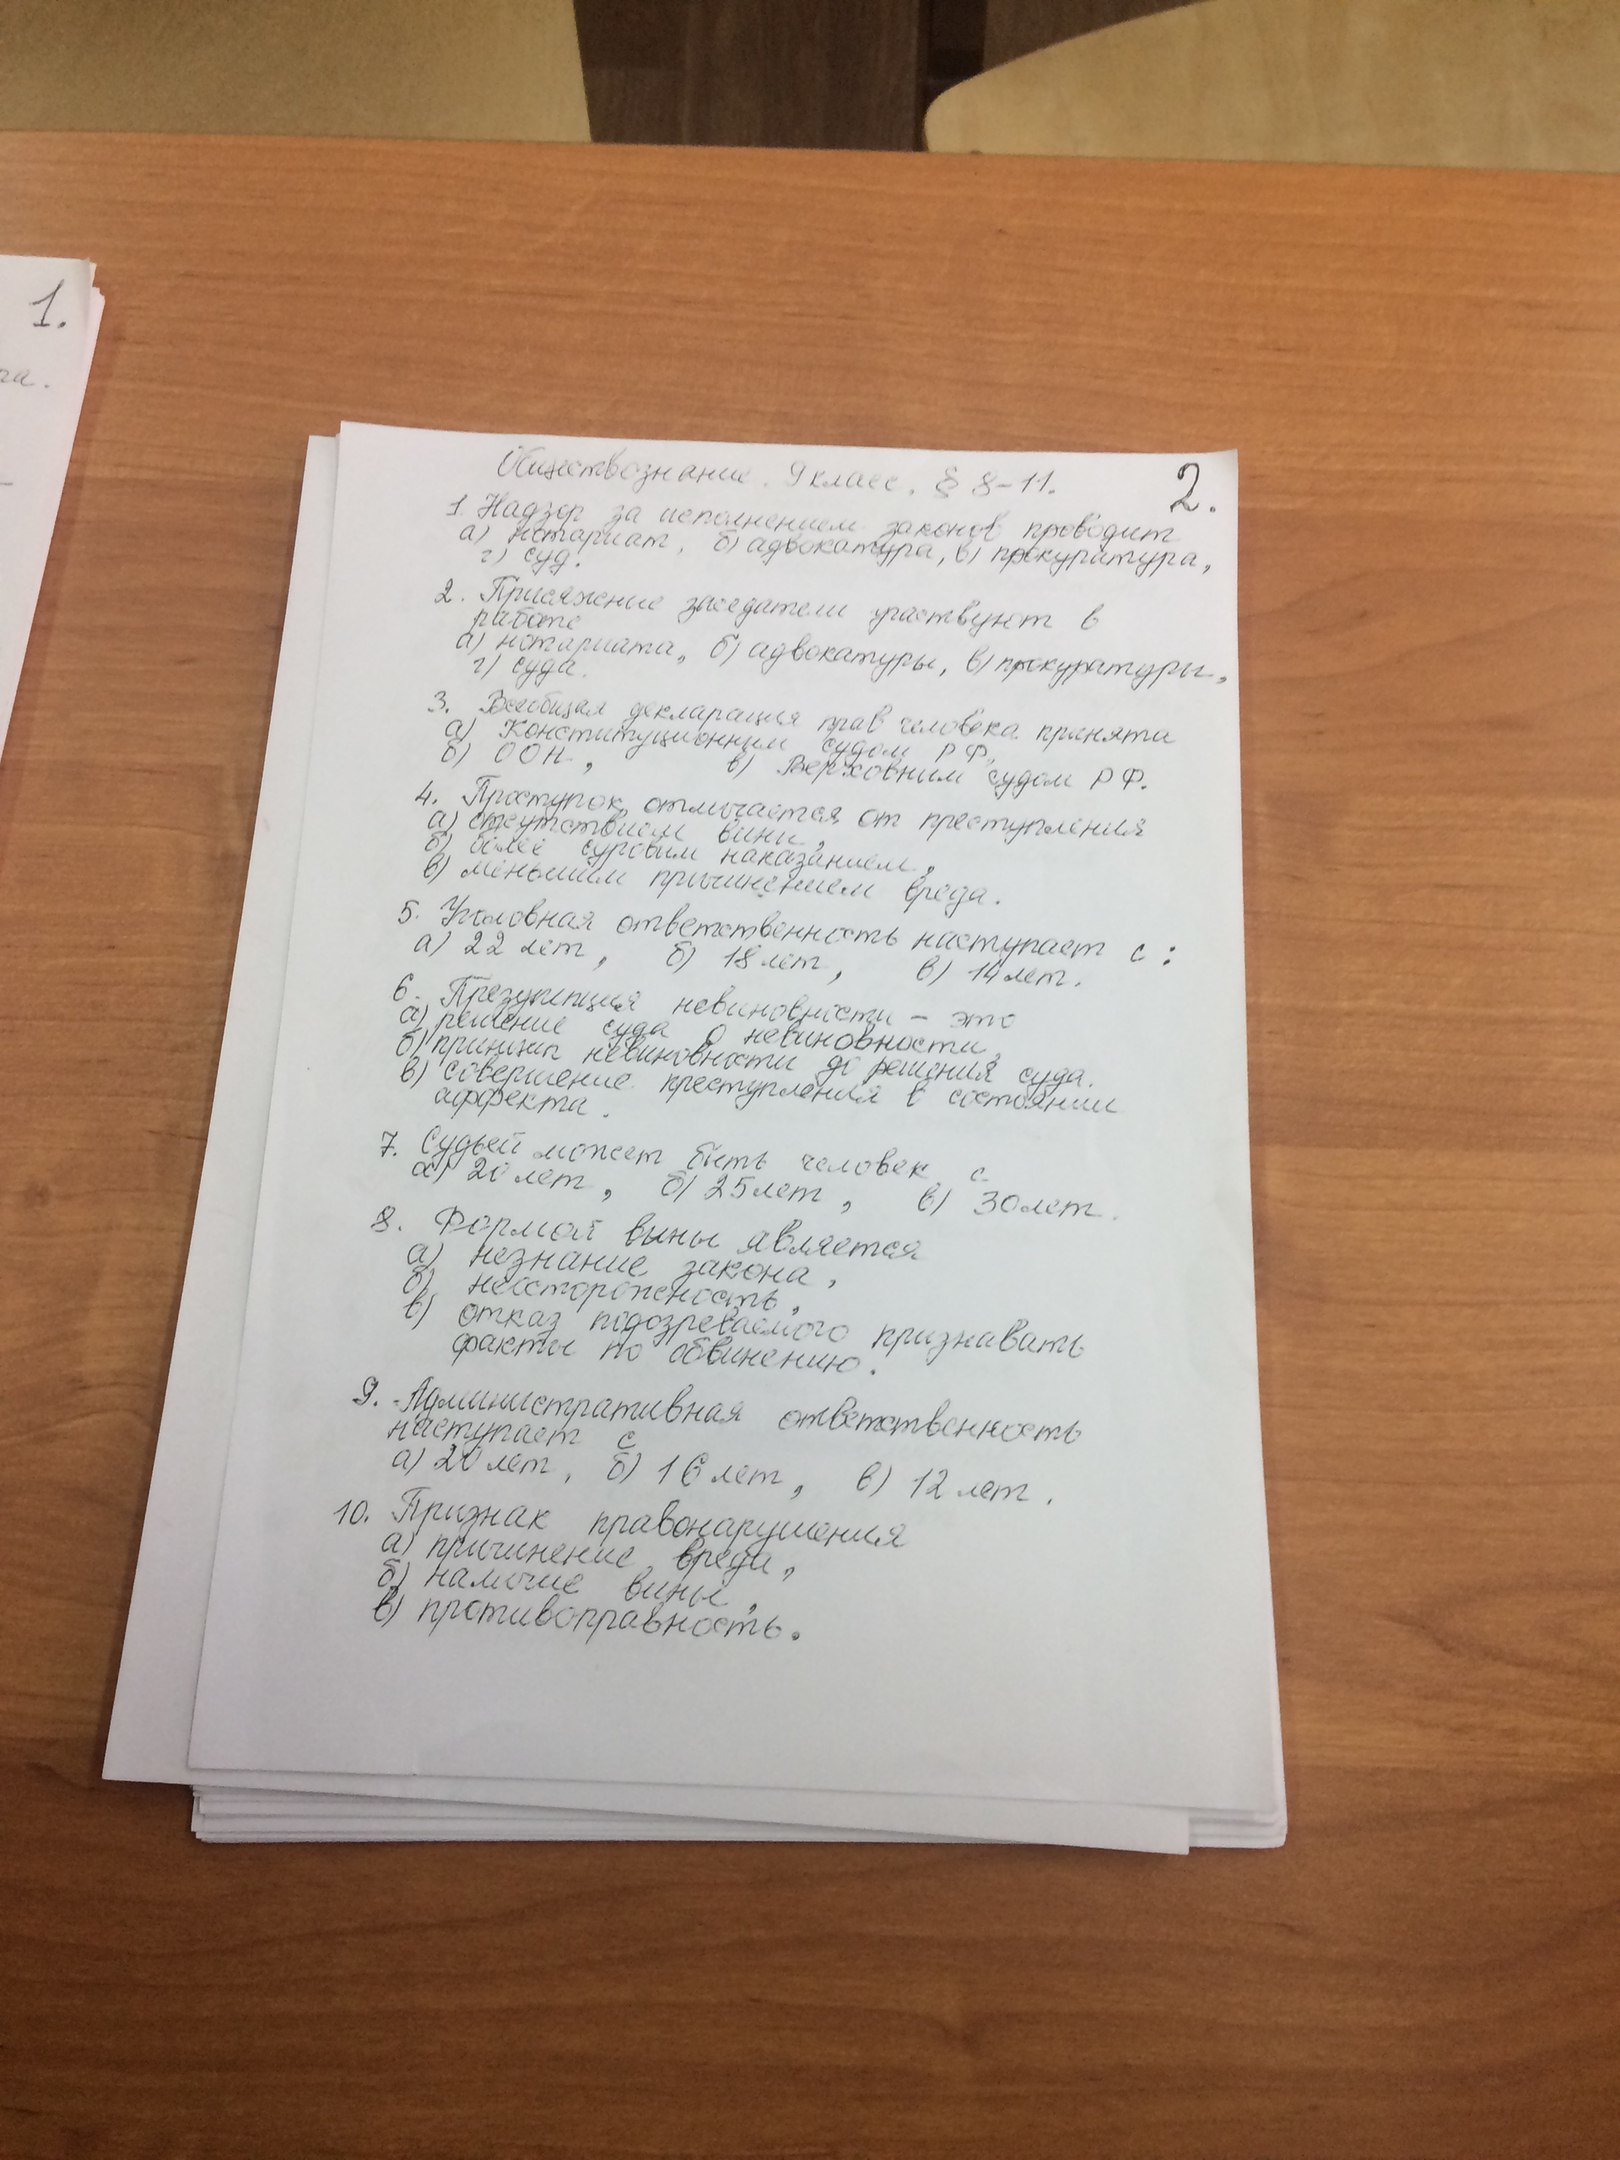 1.
Обществознание. 9 класс. § 8-11.
2.
1. Надзор за исполнением законов проводит
а) нотариат, б) адвокатура, в) прокуратура,
г) суд.
2. Присяжение заседатели участвуют в
работе
а) нотариата, б) адвокатуры, в) прокуратуры,
г) суда.
3. Всеобщая декларация прав человека принята
а) Конституционным судом РФ,
б) ООН, в) Верховним судом РФ.
4. Проступок отличается от преступления
а) отсутствием вини,
б) более суровим наказанием,
в) меньшим причинением вреда.
5. Уголовная ответственность наступает с:
а) 22 лет, б) 18 лет, в) 14 лет.
6. Презумпция невиновности - это
а) решение суда о невиновности,
б) принцип невиновности до решения суда.
в) совершение преступления в состоянии
аффекта.
7. Судьей может быть человек с
а) 20 лет, б) 25 лет, в) 30 лет.
8. Формой вины является
а) незнание закона,
б) неосторожность,
в) отказ подозреваемого признавать
факты по обвинению.
9. Административная ответственность
наступает с
а) 20 лет, б) 16 лет, в) 12 лет.
10. Признак правонарушения
а) причинение вреда,
б) наличие вины,
в) противоправность.